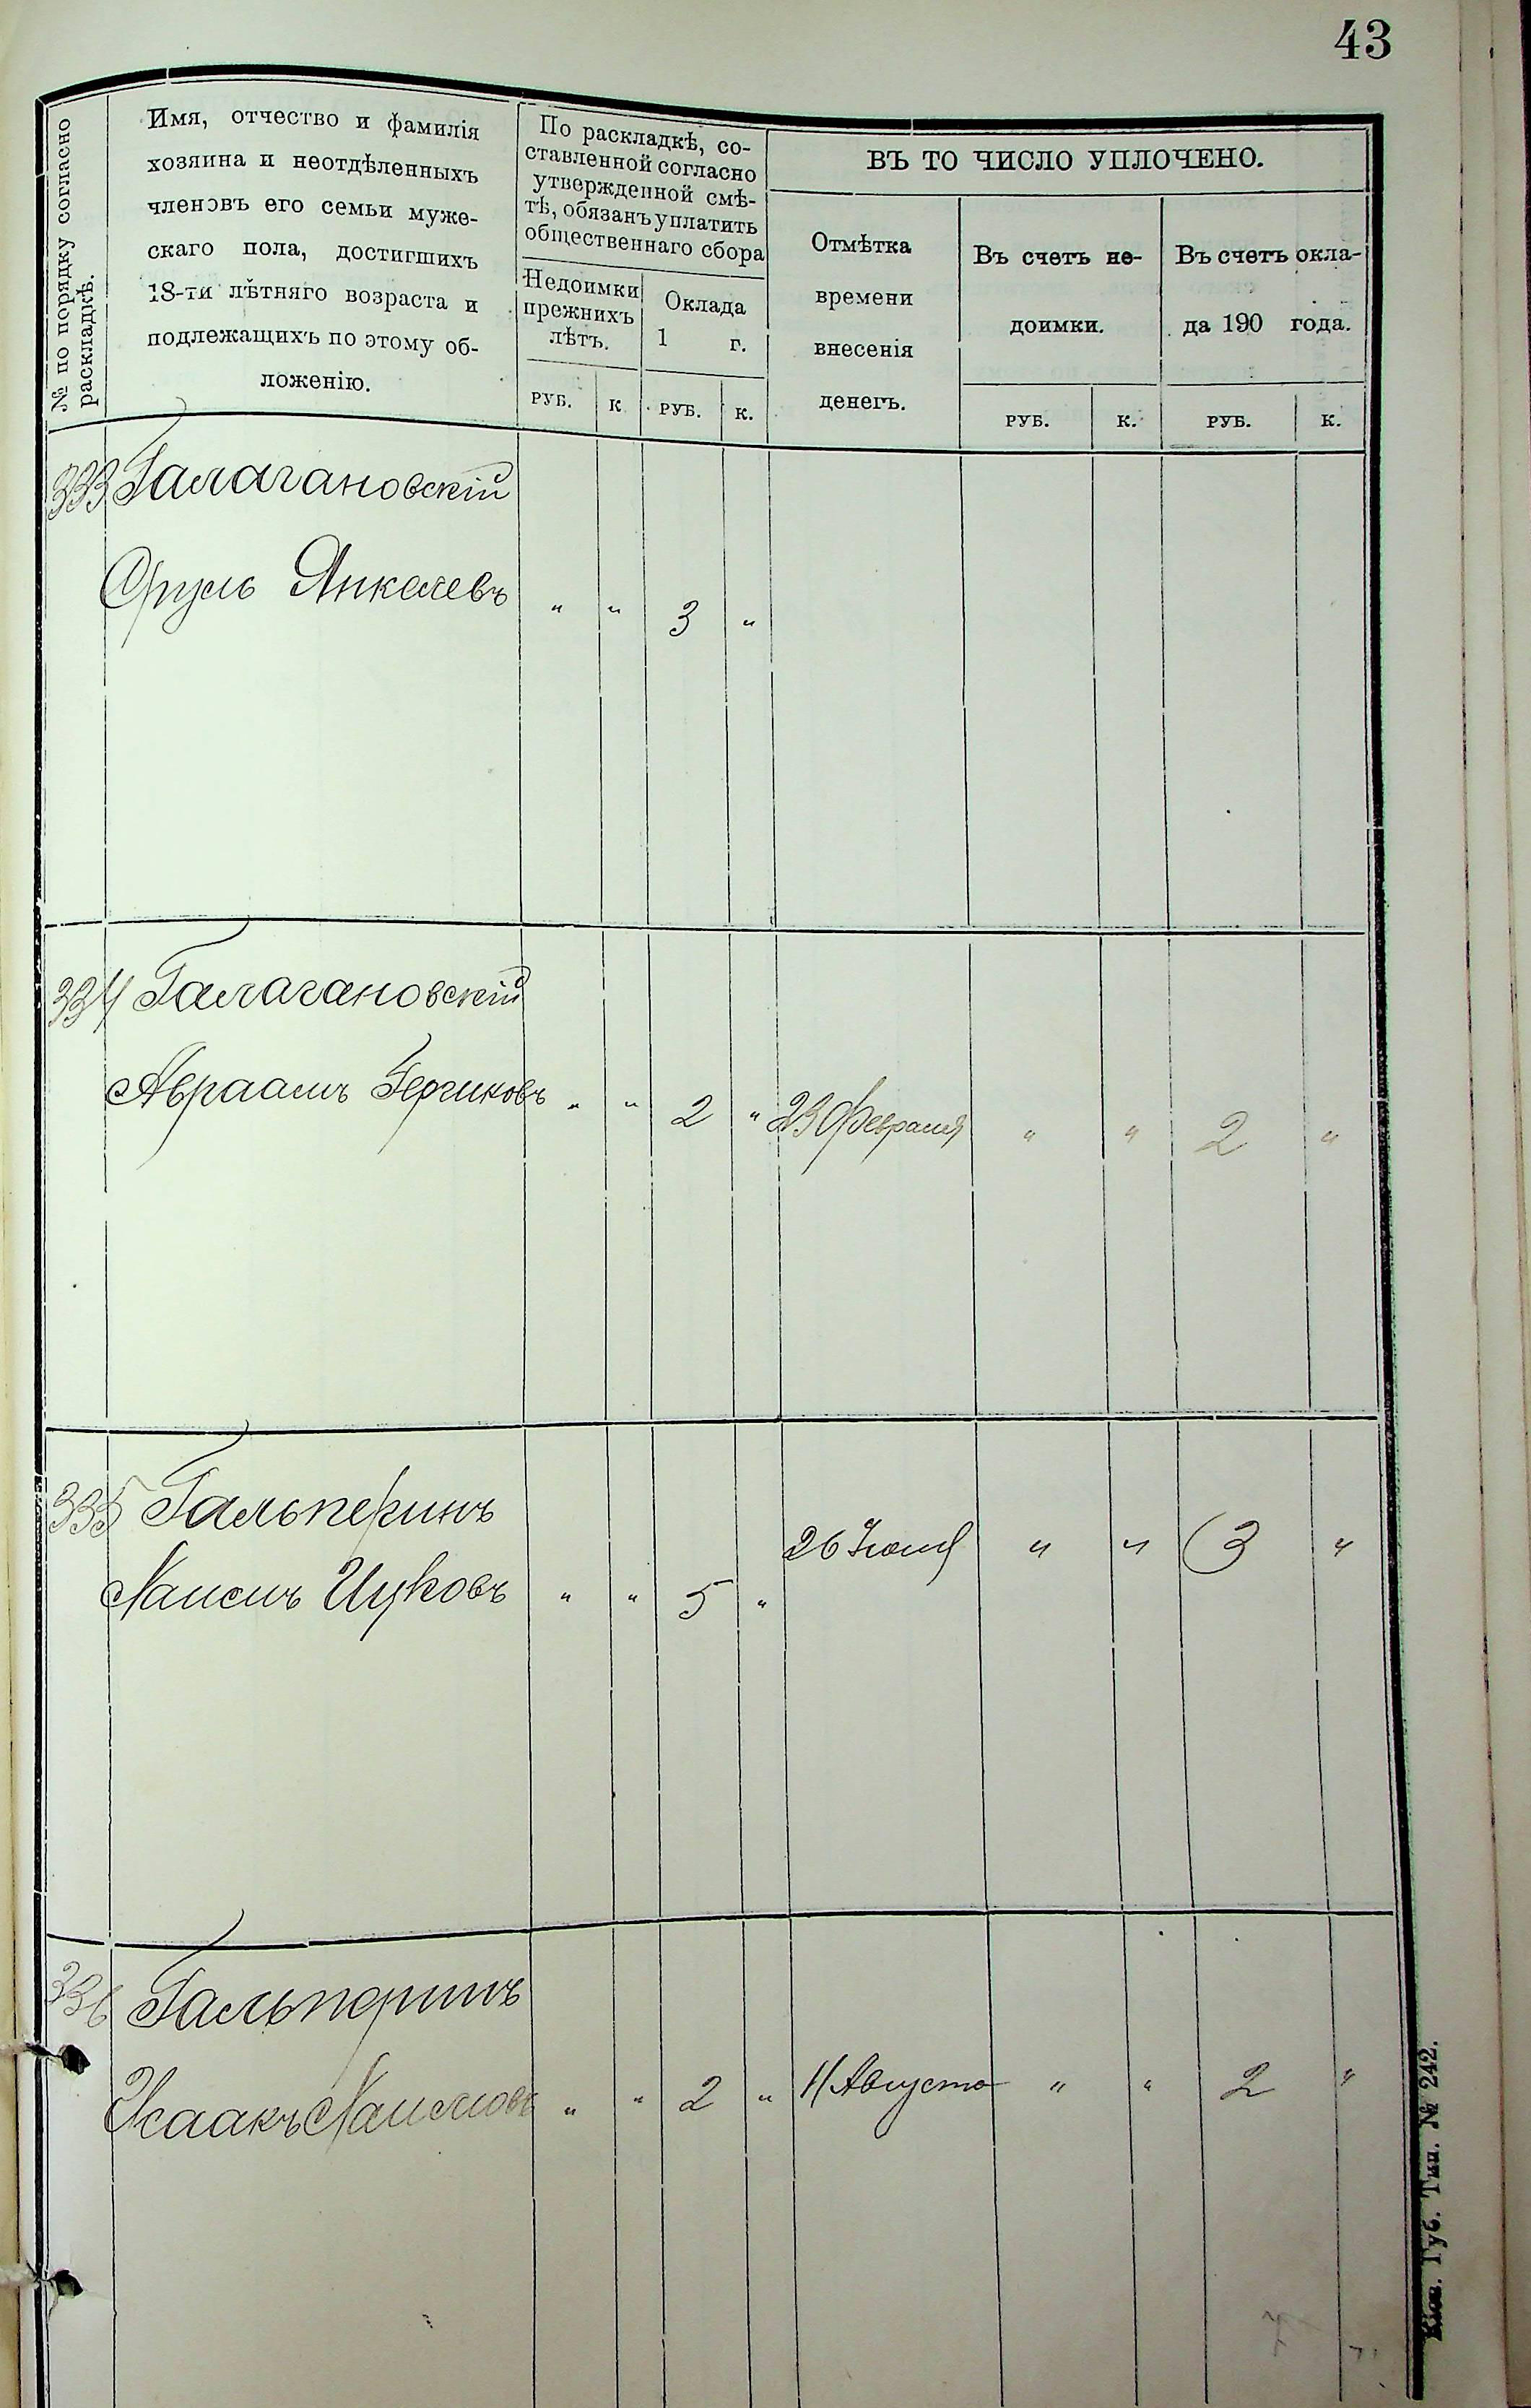 43
№ по порядку согласно
раскладкѣ.
Имя, отчество и фамилія
хозяина и неотдѣленныхъ
членовъ его семьи муже-
скаго пола, достигшихъ
18-ти лѣтняго возраста и
подлежащихъ по этому об-
ложенію.
По раскладкѣ, со-
ставленной согласно
утвержденной смѣ-
тѣ, обязанъ уплатить
общественнаго сбора
Недоимки
прежнихъ
лѣтъ.
Оклада
1 г.
РУБ. К РУБ. К.
ВЪ ТО ЧИСЛО УПЛОЧЕНО.
Отмѣтка
времени
внесенія
денегъ.
Въ счетъ не-
доимки.
Въ счетъ окла-
да 190 года.
РУБ. К. РУБ. К.
333 Галагановскій
Сруль Янкелевъ " " 3 "
334 Галагановскій
Авраамъ Герчиковъ " " 2 " 23 Февраля " " 2 "
335 Гальперинъ
Хаимъ Ицковъ " " 5 " 26 Іюля " " 3 "
336 Гальперинъ
Исаакъ Хаимовъ " " 2 " 11 Августа " " 2 "
7
Кіев. Губ. Тип. № 242.